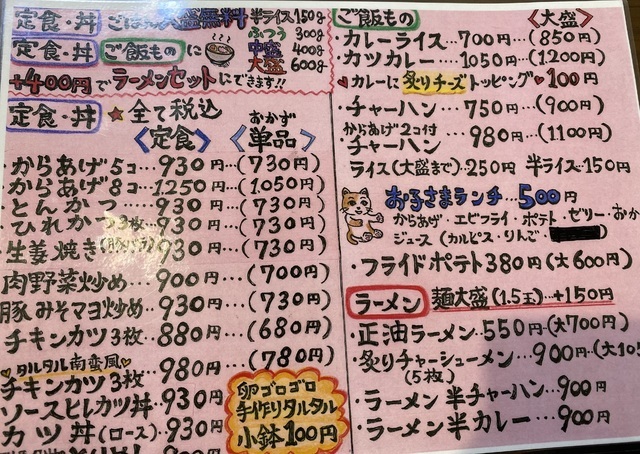 定食・丼 ごはん大盛無料
半ライス150g
ふつう300g
中盛400g
大盛600g
定食・丼 ご飯ものに
+400円でラーメンセットにできます!!
定食・丼 ★全て税込
〈定食〉 おかず〈単品〉
・からあげ5コ…930円…(730円)
・からあげ8コ…1250円…(1050円)
・とんかつ…930円…(730円)
・ひれかつ3枚…930円…(730円)
・生姜焼き(豚バラ)…930円…(730円)
肉野菜炒め…900円…(700円)
豚みそマヨ炒め…930円…(730円)
チキンカツ3枚…880円…(680円)
♥タルタル南蛮風♥
チキンカツ3枚…980円…(780円)
ソースヒレカツ丼…930円
カツ丼(ロース)…930円
卵ゴロゴロ
手作りタルタル
小鉢100円
ご飯もの 〈大盛〉
・カレーライス…700円…(850円)
・カツカレー…1050円…(1200円)
♥カレーに炙りチーズトッピング♥100円
・チャーハン…750円…(900円)
からあげ2コ付
・チャーハン…980円…(1100円)
ライス(大盛まで)…250円 半ライス…150円
お子さまランチ…500円
からあげ・エビフライ・ポテト・ゼリー・おか
ジュース(カルピス・りんご・
・フライドポテト380円(大600円)
ラーメン 麺大盛(1.5玉)…+150円
・正油ラーメン…550円…(大700円)
・炙りチャーシューメン…900円…(大105
(5枚)
・ラーメン半チャーハン…900円
・ラーメン半カレー…900円